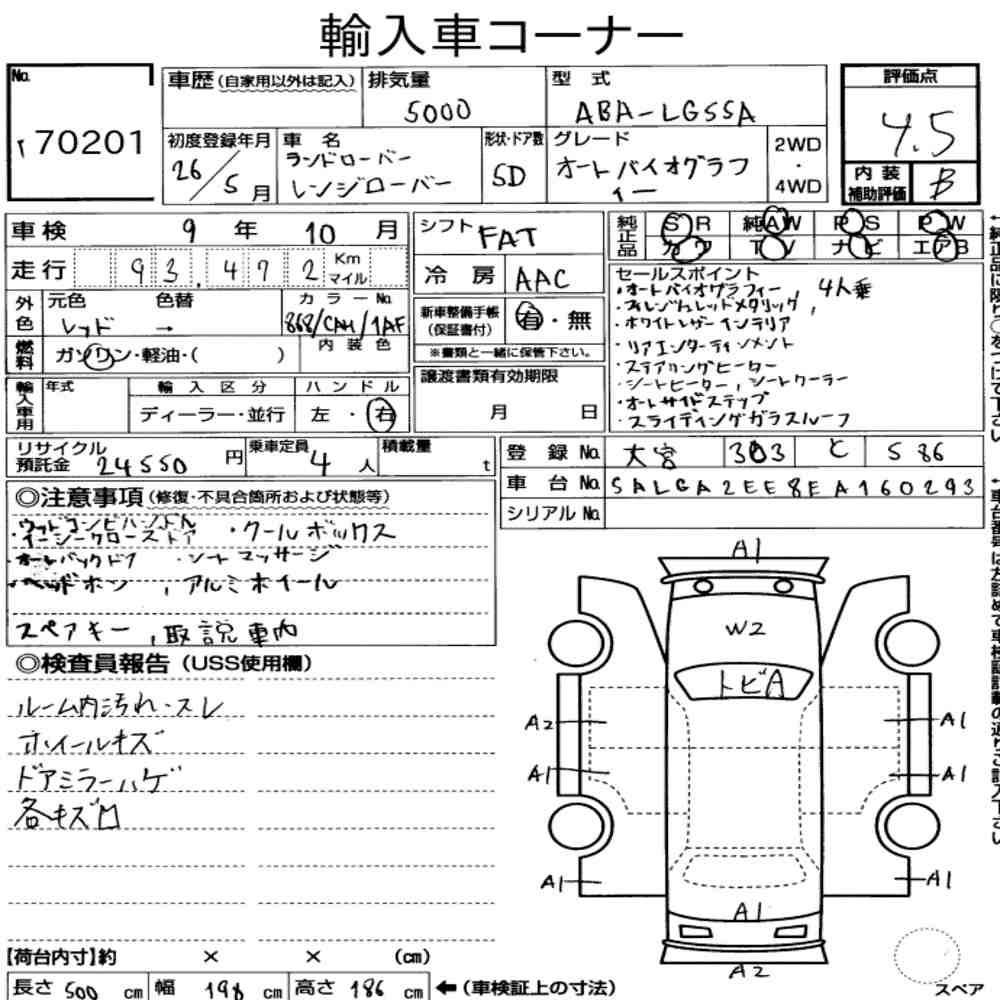 輸入車コーナー
No. 70201
車歴(自家用以外は記入)
排気量 5000
型式 ABA-LG5SA
評価点 4.5
初度登録年月 26/5月
車名 ランドローバー
レンジローバー
形状・ドア数 5D
グレード オートバイオグラフ
ィー
2WD
・
4WD
内装
補助評価 B
車検 9年 10月
シフト FAT
純正品 SR 純AW PS PW
カワ TV ナビ エアB
走行 93,472 Km
マイル
冷房 AAC
セールスポイント
・オートバイオグラフィー, 4人乗
・フィレンツェレッドメタリック,
・ホワイトレザーインテリア
・リアエンターテインメント
・ステアリングヒーター
・シートヒーター, シートクーラー
・オートサイドステップ
・スライディングガラスルーフ
外色 元色 色替 カラーNo.
レッド → 868/CAH/1AF
新車整備手帳
(保証書付) 有・無
※書類と一緒に保管下さい。
燃料 ガソリン・軽油・( ) 内装色
譲渡書類有効期限
月 日
輸入車用 年式 輸入区分 ハンドル
ディーラー・並行 左・右
リサイクル
預託金 24550円
乗車定員 4人
積載量 t
登録No. 大宮 303 と 586
車台No. SALGA2EE8EA160293
シリアルNo.
◎注意事項(修復・不具合箇所および状態等)
ウッドコンビハンドル ・クールボックス
イージークローズドア
オートバックドア ・シートマッサージ
ヘッドホン , アルミホイール
スペアキー, 取説車内
◎検査員報告(USS使用欄)
ルーム内汚れ・スレ
ホイールキズ
ドアミラーハゲ
各キズ凹
A1
W2
トビA
A2 A1
A1 A1
A1 A1
A1
A2
スペア
【荷台内寸】約 × × (cm)
長さ 500 cm 幅 198 cm 高さ 186 cm ←(車検証上の寸法)